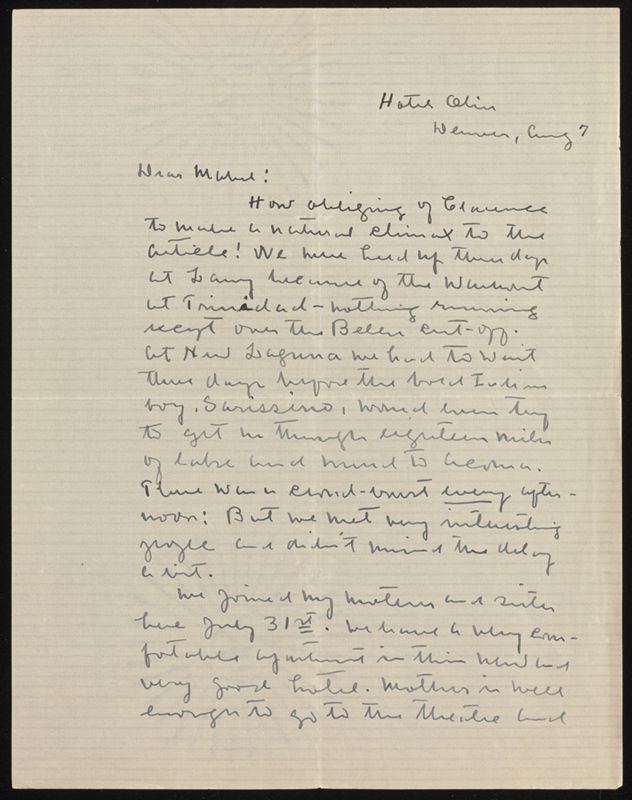 Hotel Olin
Denver, Aug 7
Dear Mabel:
How obliging of Clarence
to make a natural climax to the
article! We were held up three days
at Lamy because of the washout
at Trinidad - nothing running
except over the Belen cut-off.
At New Laguna we had to wait
three days before the bold Indian
boy, Sarissino, would even try
to get us through eighteen miles
of lake and mud to Acoma.
There was a cloud-burst every after-
noon! But we met very interesting
people and didn't mind the delay
a bit.
We joined my mother and sister
here July 31st. We have a very com-
fortable apartment in this new and
very good hotel. Mother is well
enough to go to the theatre and